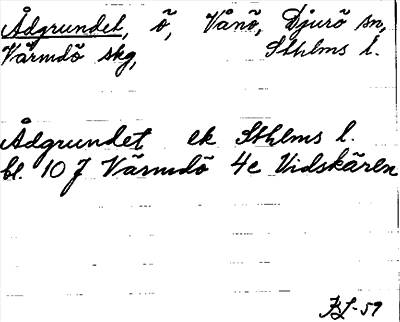 Ådgrundet, ö, Vånö, Djurö sn,
Värmdö skg, Sthlms l.
Ådgrundet ek Sthlms l.
bl. 10 J Värmdö 4e Vidskären
KL-59